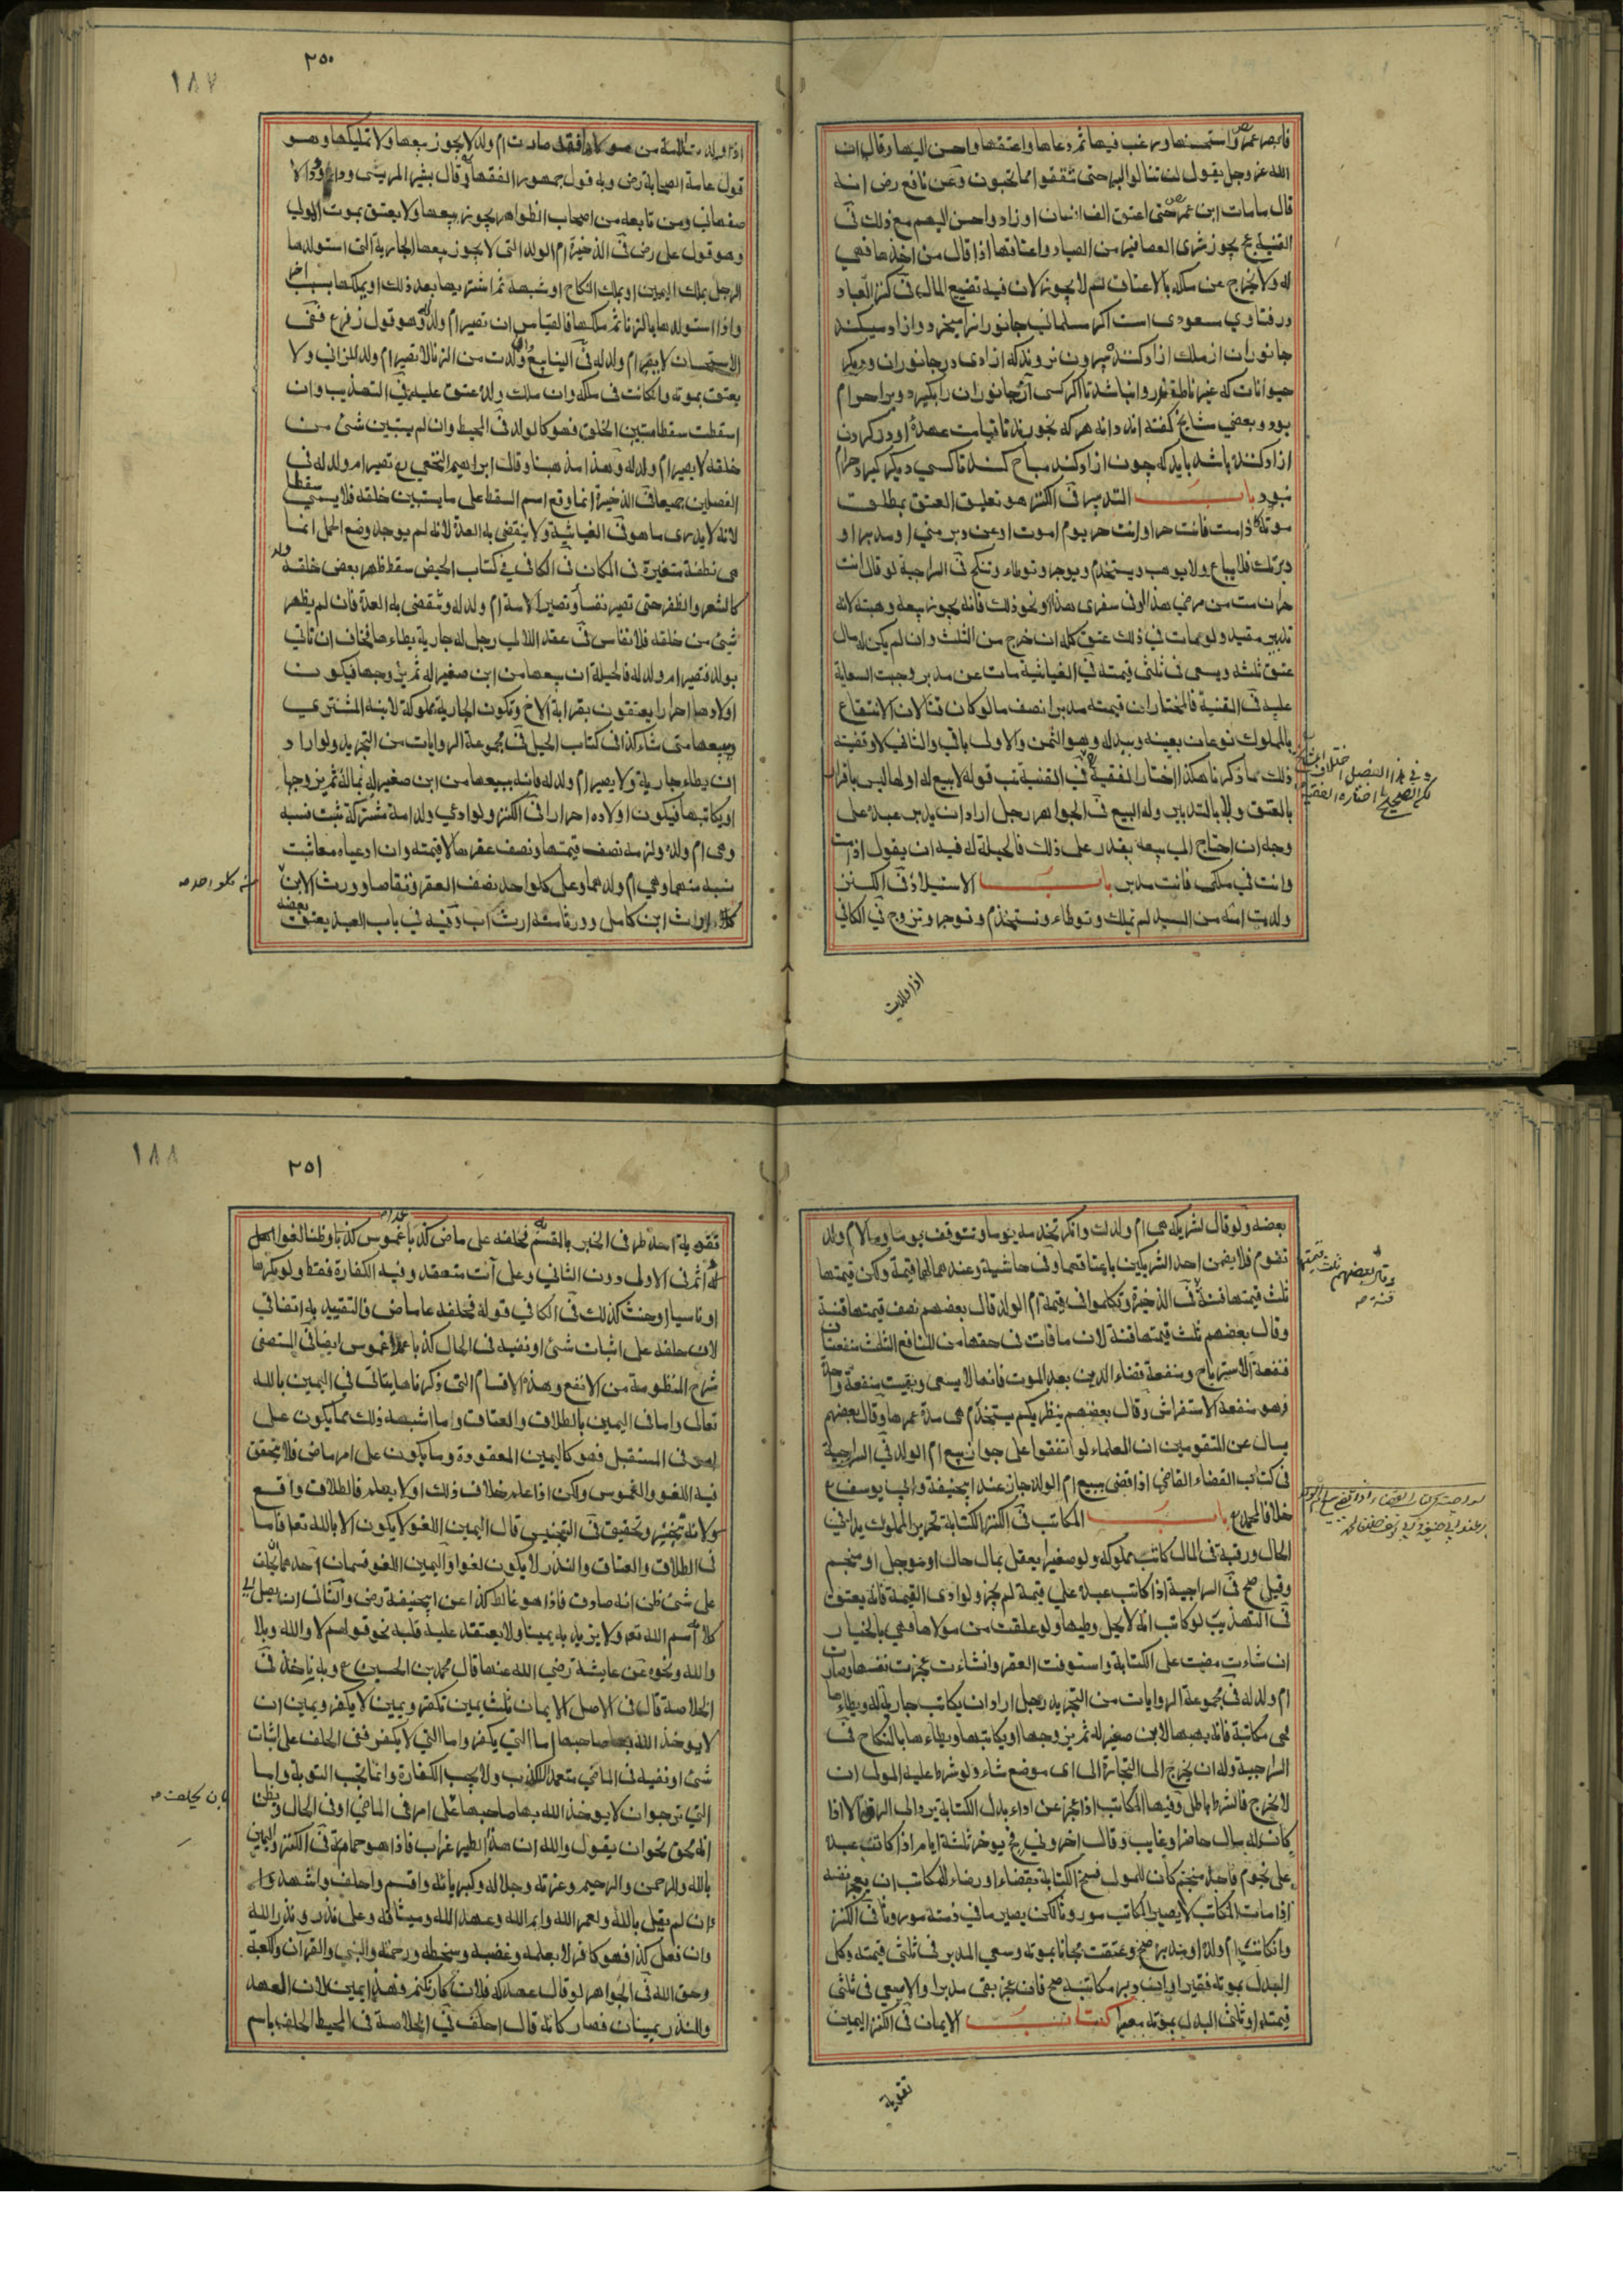 فابصر عمر واستحسنها ورغب فيها ثم دعاها واعتقها واحسن اليها وقال ان
الله عز وجل يقول لن تنالوا البر حتى تنفقوا مما تحبون وعن نافع رض انه
قال ما مات ابن عمر حتى اعتق الف انسان او زاد واحسن اليهم مع ذلك فى
القنية يجوز شرى العصافير من الصياد واعتاقها اذا قال من اخذها فهي
له ولا يخرج عن ملكه بالاعتاق لا يجوز لان فيه تضييع المال فى كنز العباد
در فتاوي سعودى است اكر مسلمانى جانورانرا ميخرد وازاد ميكند
جانوران از ملك ازاد كننده بيرون نروند كه ازادى در جانوران وديكر
حيوانات كه غير ناطق اند روا نباشد تا اكر كسى آن جانوران را بكيرد وبرا حرام
بود وبعضي مشايخ كفته اند دانه هر كه بخورند تا قيامت عهدهٔ او در كردن
ازاد كننده باشد بايد كه چون ازاد كند مباح كند تا كسي ديكر كيرد حرام
نبود باب التدبير فى الكنز هو تعليق العتق بمطلق
موته كاذا مت فانت حر او انت حر يوم اموت او عن دبر مني او مدبر او
دبرتك فلا يباع ولا يوهب ويستخدم ويوجر وتوطاء وتنكح فى السراجية لو قال انت
حر ان مت من مرضي هذا او فى سفري هذا او نحو ذلك فانه يجوز بيعه وهبته لانه
تدبير مقيد ولو مات في ذلك عتق كله ان خرج من الثلث وان لم يكن له مال
عتق ثلثه ويسعى فى ثلثى قيمته فى الغياثية مات عن مدبر وجبت السعاية
عليه فى القنية فالمختار ان قيمته مدبرا نصف ما لو كان قنا لان الانتفاع
بالمملوك نوعان بعينه وببدله وهو الثمن والاول باقي والثاني لا وقضيته
ذلك مما ذكرنا هكذا اختار الفقيه فى القنية قوله لا بيع له اولها ليس باقرار
بالعتق ولا بالتدبير وله البيع فى الجواهر رجل اراد ان يدبر عبده على
وجه ان احتاج الى بيعه يقدر على ذلك فالحيلة له فيه ان يقول اذا مت
وانت في ملكى فانت مدبر باب الاستيلاد فى الكنز
ولدت امته من السيد لم تملك وتوطاء وتستخدم وتوجر وتزوج فى الكافي
اذا ولدت
١٨٧
٢٥٠
اذا ولدت الامة من مولاها فقد صارت ام ولد لا يجوز بيعها ولا تمليكها وهو
قول عامة الصحابة رض وبه قول جمهور الفقهاء وقال بشر المريسى وداود الا
صفهاني ومن تابعه من اصحاب الظواهر يجوز بيعها ولا يعتق بموت المولى
وهو قول على رض فى الذخيرة ام الولد التى لا يجوز بيعها الجارية التى استولدها
الرجل بملك اليمين او بملك النكاح او شبهة ثم اشتريها بعد ذلك او يملكها بسبب اخر
واذا استولدها بالزنا ثم ملكها فالقياس ان تصير ام ولد له وهو قول زفر ع فى
الاستحسان لا يصير ام ولد له فى الينابيع ولدت من الزنا لا تصير ام ولد للزاني ولا
يعتق بموته وان كانت فى ملكه وان ملك ولده عتق عليه فى التهذيب وان
اسقطت سقطا مستبين الخلق فهو كالولد فى المحيط وان لم يستبين شئ من
خلقه لا يصير ام ولد له وهذا مذهبنا وقال ابراهيم النخعي ع تصير ام ولد له فى
الفصلين جميعا فى الذخيرة انما وقع اسم السقط على ما يستبين خلقه فلا يسمى سقطا
لانه لا يدرى ما هو فى الغياثية ولا ينقضى به العدة لانه لم يوجد وضع الحمل انما
هى نطفة متغيرة فى المكان فى الكافي فى كتاب الحيض سقط ظهر بعض خلقه ولد
كالشعر والظفر حتى تصير نفساء وتصير الامة ام ولد له وتنقضى به العدة فان لم يظهر
شئ من خلقه فلا نفاس فى عقد اللالى رجل له جارية يطاءها فخاف ان تاتي
بولد فتصير ام ولد له فالحيلة ان يبعها من ابن صغير له ثم يتزوجها فيكون
اولادها احرارا يعتقون بقرابة الاخ وتكون الجارية مملوكة لابنه المشتري
ويبعها متى شاء كذا فى كتاب الحيل فى مجموعة الروايات من التجريد ولو اراد
ان يطاء جارية ولا يصير ام ولد له فانه يبيعها من ابن صغير له ثم يتزوجها
او يكاتبها فيكون اولاده احرارا فى الكنز ولو ادعى ولد امة مشتركة ثبت نسبه
وهى ام ولده ولزمه نصف قيمتها ونصف عقرها لا قيمته وان ادعياه معا ثبت
نسبه منهما وهي ام ولد هما وعلى كل واحد نصف العقر وتقاصا وورث الابن
كلا ارث ابن كامل وورثا منه ارث اب وفيه في باب العبد يعتق بعضه
بعضه ولو قال لشريكه هى ام ولدك وانكر تخدمه يوما وتتوقف يوما وما لام ولد
تقوم فلا يضمن احد الشريكين باعتاقها وفى حاشيته وعندهما لها قيمة ولكن قيمتها
ثلث قيمتها قنة فى الذخيرة وتكلموا فى قيمة ام الولد قال بعضهم نصف قيمتها قنة
وقال بعضهم ثلث قيمتها قنة لان ما فات فى حقها من المنافع الثلث منفعتان
منفعة الاسترباح ومنفعة قضاء الدين بعد الموت فانها لا يسعى وبقيت منفعة واحدة
فهو منفعة الاستفراش وقال بعضهم ينظر بكم يستخدم هى مدة عمرها وقال بعضهم
يسال عن المتقومين ان العلماء لو اتفقوا على جواز بيع ام الولد فى السراجية
فى كتاب القضاء القاضي اذا قضى ببيع ام الولد جاز عند ابيحنيفة وابي يوسف ع
خلافا لمحمد ع باب المكاتب فى الكنز الكتابة تحرير المملوك يدا في
الحال ورقبة فى المال كاتب مملوكه ولو صغيرا يعقل بمال حال او مؤجل او منجم
وقبل صح فى السراجية اذا كاتب عبده علي قيمة لم يجز ولو ادى القيمة فانه يعتق
فى التهذيب لو كاتب امة لا يحل وطيها ولو علقت من مولاها فهي بالخيار
ان شاءت مضت على الكتابة واستوفت العقر وانشاءت عجزت نفسها وصارت
ام ولد له فى مجموعة الروايات من التجريد رجل اراد ان يكاتب جارية له ويطاءها
هى مكاتبة فانه يهبها لابن صغير له ثم يتزوجها او يكاتبها ويطاءها بالنكاح فى
السراجية وله ان يخرج الى التجارة الى اى موضع شاء ولو شرط عليه المولى ان
لا يخرج فالشرط باطل وفيها المكاتب اذا عجز عن اداء بدل الكتابة يرد الى الرق الا اذا
كان له مال حاضر او غايب وقال اخروني يوخر ثلثة ايام اذا كاتب عبده
على نجوم فاخل بنجم كان للمولى فسخ الكتابة بقضاء او رضاء للمكاتب ان يعجز نفسه
اذا مات المكاتب لا يصير المكاتب موروثا لكن يصير ما في ذمته موروثا فى الكنز
وان كانت ام ولده او مدبره صح وعتقت مجانا بموته وسعى المدبر فى ثلثى قيمته وكل
البدل بموته فقيرا وان دبر مكاتبه صح فان عجز بقى مدبرا والا سعى فى ثلثى
قيمته او ثلثى البدل بموته معسرا كتاب الايمان فى الكنز اليمين
تقوية
١٨٨
٢٥١
تقوية احد طرفى الخبر بالقسم فحلفه على ماض كذبا غموس كذبا وظنا لغو
اثم فى الاولى دون الثاني وعلى آت منعقد وفيه الكفارة فقط ولو مكرها
او ناسيا او حنث كذلك فى الكافي قوله فحلفه على ماض فالتقييد به اتفاقي
لان حلفه على اثبات شئ او نفيه فى الحال كذبا عمدا غموس ايضا فى المستصفى
شرح المنظومة من الانفع وهذه الاقسام التى ذكرناها يتاتى في اليمين بالله
تعالى واما فى اليمين بالطلاق والعتاق وما اشبه ذلك مما يكون على
امر فى المستقبل فهو كاليمين المعقودة وما يكون على امر ماض فلا يتحقق
فيه اللغو والغموس ولكن اذا علم خلاف ذلك او لا يعلم فالطلاق واقع
ولانه تنجيز وتحقيق فى التجنيس قال اليمين اللغو لا يكون الا بالله تعه فاما
فى الطلاق والعتاق والنذر لا يكون لغوا واليمين اللغو قسمان احدهما ان يحلف
على شئ ظن انه صادق فاذا هو غالط كذا عن ابيحنيفة رض والثانى ان يصل الى
كلامه اسم الله تعه ولا يريد به يمينا ولا يعتقد عليه قلبه نحو قولهم لا والله وبلا
والله ونحوه عن عايشة رضي الله عنها قال محمد بن الحسن ع وبه ناخذ فى
الخلاصة قال فى الاصل الايمان ثلث يمين تكفر ويمين لا يكفر ويمين ان
لا يوخذ الله بها صاحبها اما التي يكفر واما التي لا يكفر فهى الحلف على اثبات
شئ او نفيه فى الماضي متعمدا الكذب ولا يجب الكفارة وانما تجب التوبة واما
التي نرجوا ان لا يوخذ الله بها صاحبها على امر فى الماضي او فى الحال وظن
انه محق نحو ان يقول والله ان هذا الطير غراب فاذا هو حمامة فى الكنز واليمين
بالله والرحمن والرحيم وعزته وجلاله وكبريائه واقسم واحلف واشهد
وان لم يقل بالله ولعمر الله وايم الله وعهد الله وميثاقه وعلى نذر ونذر الله
وان فعل كذا فهو كافر لا بعلمه وغضبه وسخطه ورحمته والنبي والقرآن والكعبة
وحق الله فى الجواهر لو قال عهد كه فلان كار نكنم فهذا يمين لان العهد
والنذر يمينان فصار كانه قال احلف فى الخلاصة فى المحيط الحلف باسم